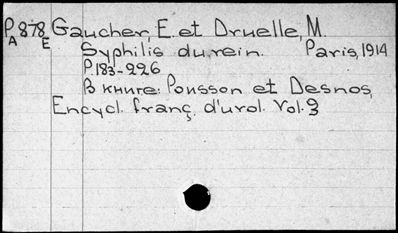 P 878 Gaucher, E. et Druelle, M.
A E
Syphilis du rein. Paris, 1914
P. 183-226
В книге: Pousson et Desnos,
Encycl. franç. d'urol. Vol. 3